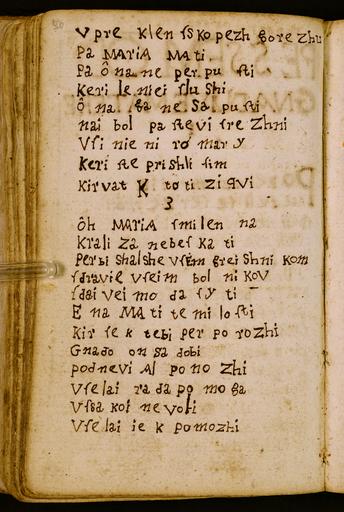 V pre klen ſs ko pezh gore Zhu
Pa MARIA MA ti
Pa Ô na ne per pu ſti
Keri le niei ſlu Shi
Ô na ga ne Sa pu ſti
nai bol pa ſte vi ſre Zhni
Vſi nie ni ro mar y
Keri ſte pri shli ſim
Kir vat K to ti zi qvi
3
Ôh MARIA ſmi len na
Krali Za nebeſ ka ti
Per bi shal she vſem grei Shni kom
ſdravie vſeim bol ni kov
ſdai vei mo da ſy ti
E na MA ti te mi lo ſti
Kir ſe k tebi per po ro zhi
Gnado on sa dobi
pod nevi Al po no Zhi
Vſe lai ra da po mo ga
Vſsa koi ne vo li
Vſe lai ie k po mozhi